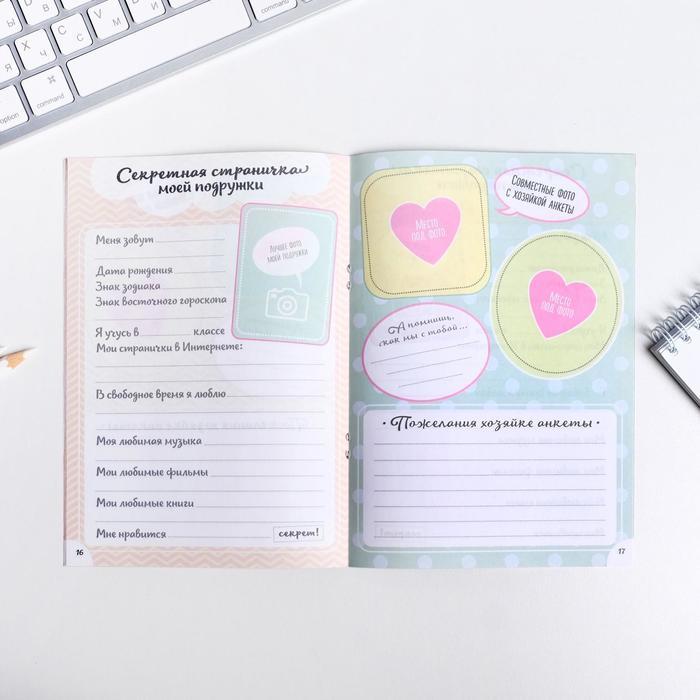 Ы
В
С
М
И
option
command
command
option
Я
Ч
⌘
Секретная страничка
моей подружки
Меня зовут
Дата рождения
Знак зодиака
Знак восточного гороскопа
Я учусь в классе
Мои странички в Интернете:
В свободное время я люблю
Моя любимая музыка
Мои любимые фильмы
Мои любимые книги
Мне нравится секрет!
16
Лучшее фото
моей подружки
Место
под фото
Совместные фото
с хозяйкой анкеты
Место
под фото
А помнишь,
как мы с тобой...
· Пожелания хозяйке анкеты ·
17